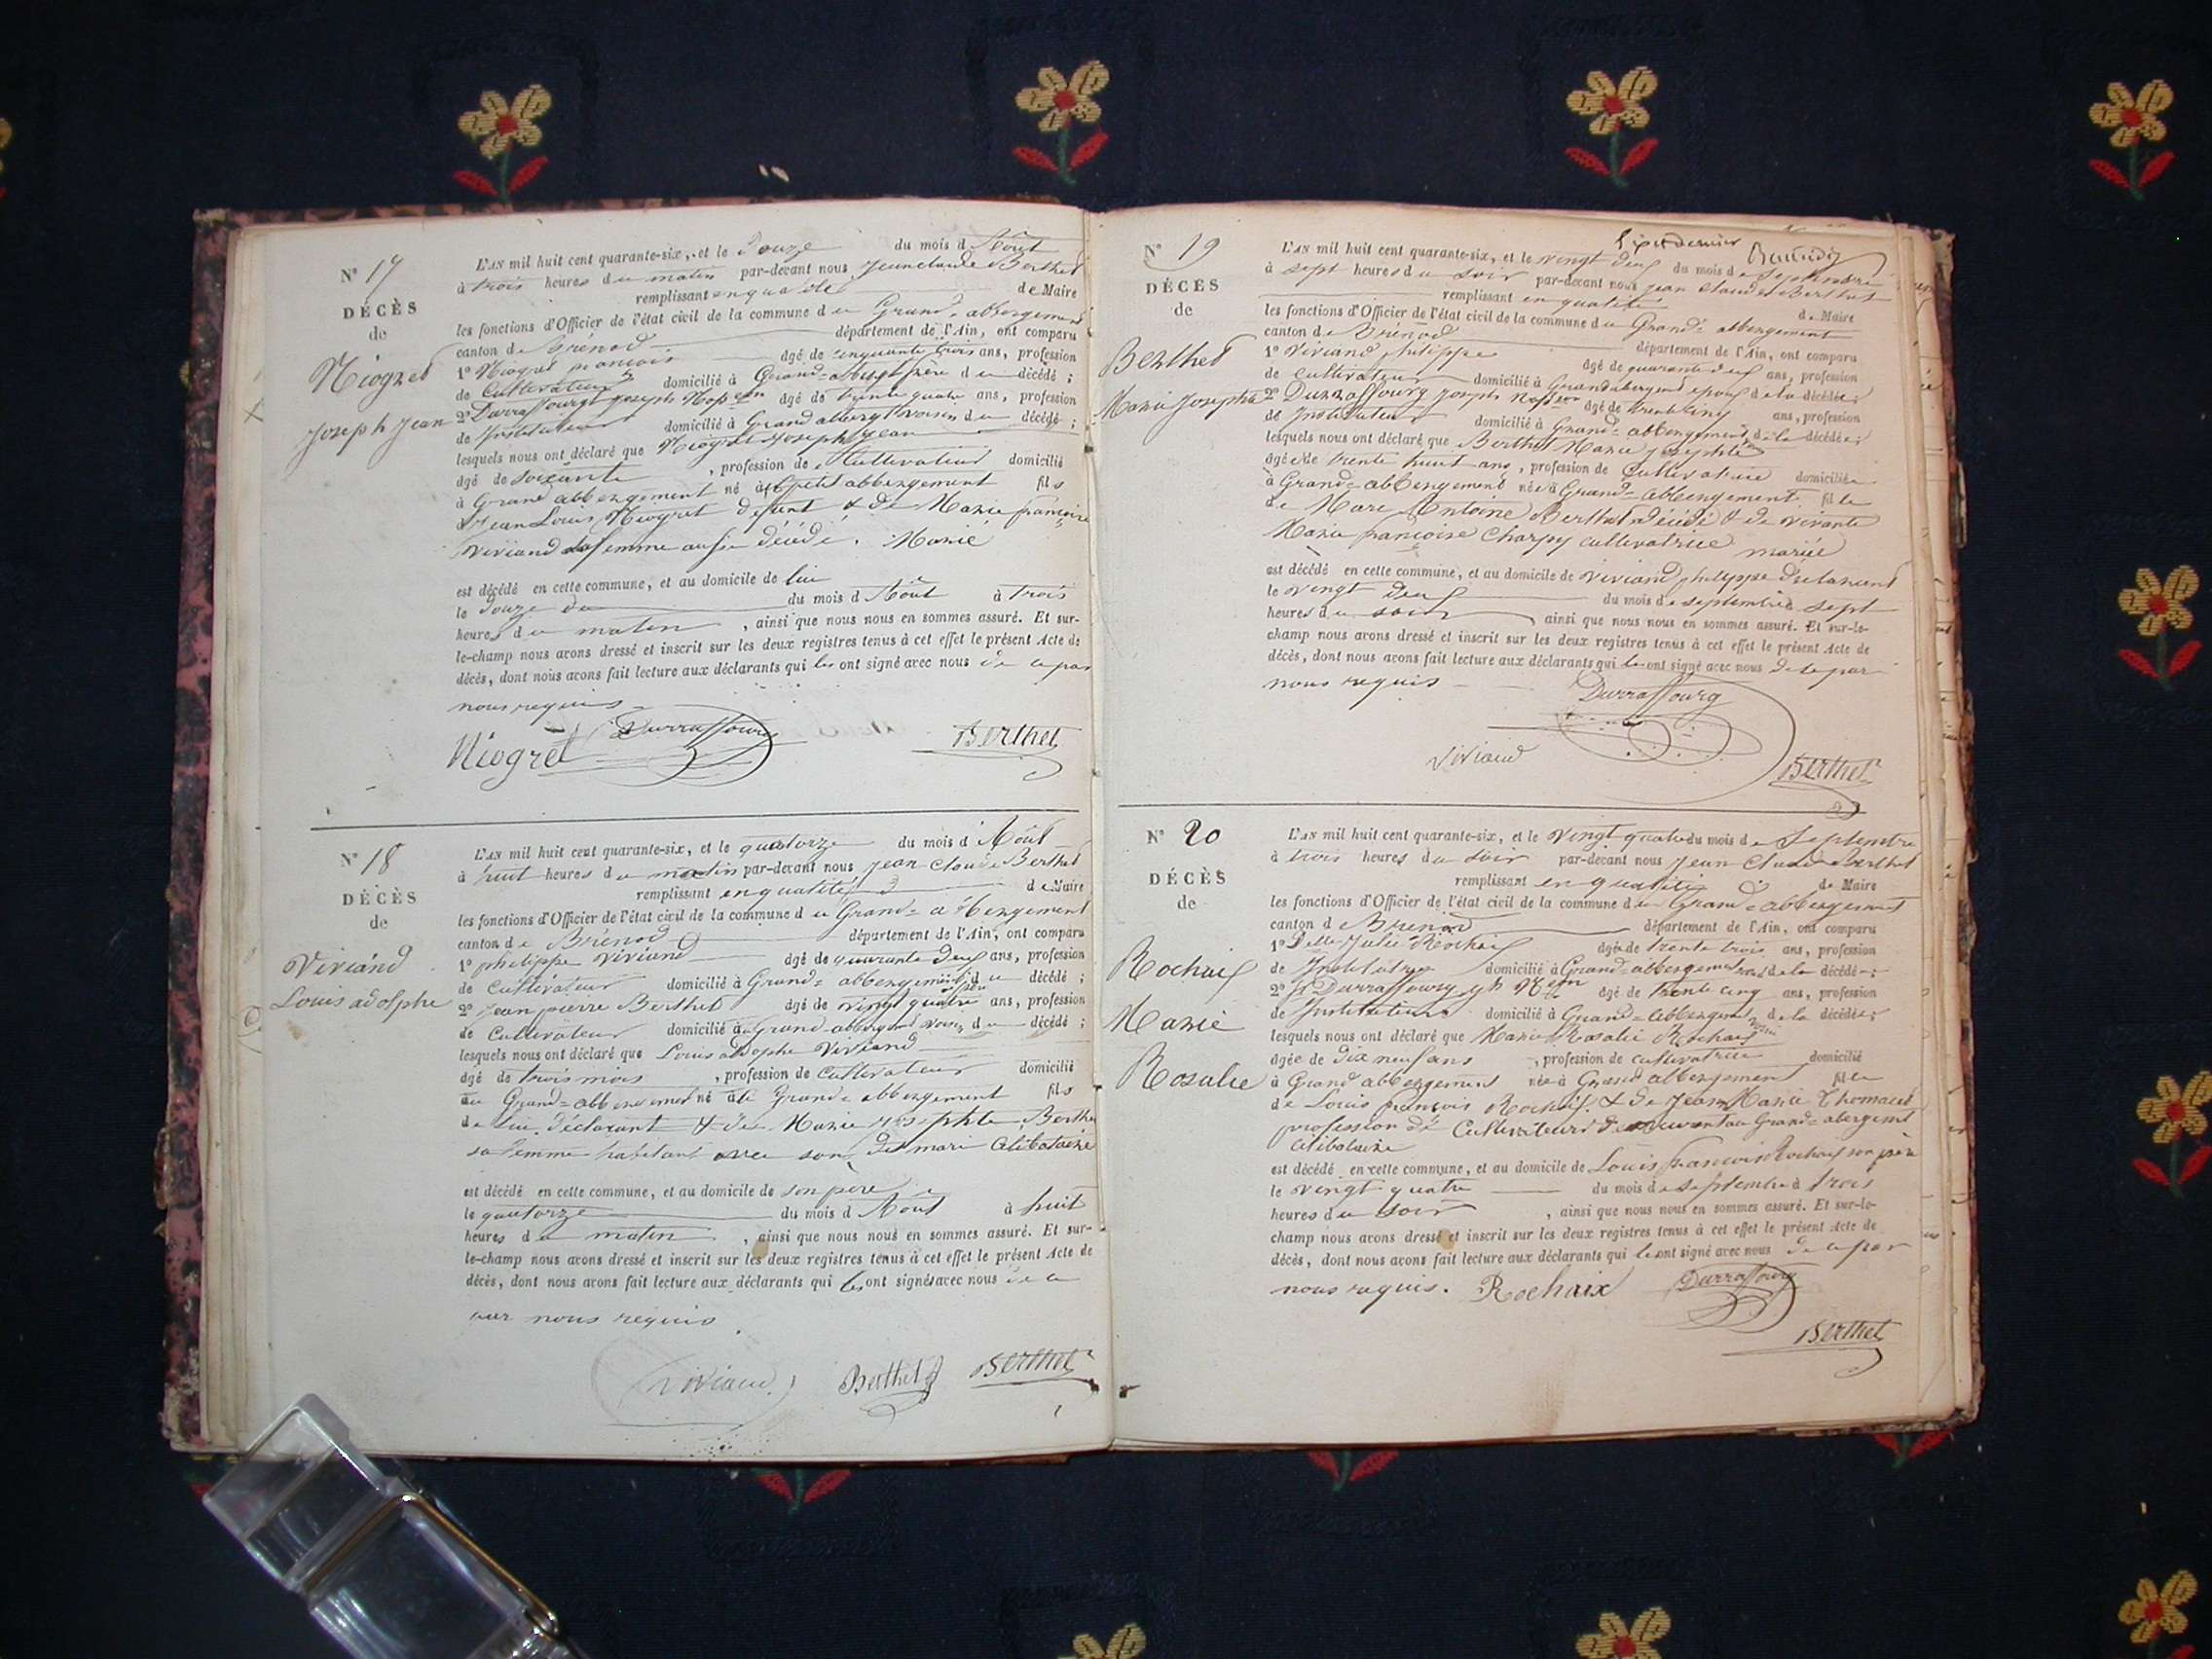 N° 17
DÉCÈS
de
Niogret
Joseph Jean
L'AN mil huit cent quarante-six, et le Douze du mois d'Aôut
à trois heures du matin par-devant nous Jean claude Berthet
remplissant en qualité de Maire
les fonctions d'Officier de l'état civil de la commune du Grand=abbergement
canton de Brénod département de l'Ain, ont comparu
1° Niogret françois âgé de cinquante trois ans, profession
de Cultivateur domicilié à Grand=abergt père du décédé ;
2° Durraffourg joseph âgé de trente quatre ans, profession
de Instituteur domicilié à Grand abergt voisin du décédé ;
lesquels nous ont déclaré que Niogret Joseph Jean
âgé de soixante , profession de Cultivateur domicilié
à Grand abbergement né à petit abbergement fils
de Jean Louis Niogret defunt & de Marie françoise
Viviand sa femme aussi décédé. Marié
est décédé en cette commune, et au domicile de lui
le Douze du du mois d'Aôut à trois
heures du matin , ainsi que nous nous en sommes assuré. Et sur-
le-champ nous avons dressé et inscrit sur les deux registres tenus à cet effet le présent Acte de
décès, dont nous avons fait lecture aux déclarants qui les ont signé avec nous de ce par
nous requis
Niogret Durraffourg Berthet
N° 18
DÉCÈS
de
Viviand
Louis adolphe
L'AN mil huit cent quarante-six, et le quatorze du mois d'Aôut
à huit heures du matin par-devant nous Jean Claude Berthet
remplissant en qualité de Maire
les fonctions d'Officier de l'état civil de la commune du Grand=abbergement
canton de Brénod département de l'Ain, ont comparu
1° philippe Viviand âgé de quarante deux ans, profession
de Cultivateur domicilié à Grand=abbergement du décédé ;
2° Jean pierre Berthet âgé de vingt quatre ans, profession
de Cultivateur domicilié à Grand abbergemt voisin du décédé ;
lesquels nous ont déclaré que Louis adolphe Viviand
âgé de trois mois , profession de Cultivateur domicilié
au Grand=abbergement né au Grand=abbergement fils
de lui déclarant & de Marie josephte Berthet
sa femme habitant avec son dit mari Célibataire
est décédé en cette commune, et au domicile de son père
le quatorze du mois d'Aôut à huit
heures du matin , ainsi que nous nous en sommes assuré. Et sur-
le-champ nous avons dressé et inscrit sur les deux registres tenus à cet effet le présent Acte de
décès, dont nous avons fait lecture aux déclarants qui les ont signé avec nous de ce
par nous requis
Viviand Berthet Berthet
N° 19
DÉCÈS
de
Berthet
Marie Josephte
L'AN mil huit cent quarante-six, et le vingt deux du mois de Septembre
à sept heures du soir par-devant nous jean claude Berthet
remplissant en qualité de Maire
les fonctions d'Officier de l'état civil de la commune du Grand=abbergement
canton de Brénod département de l'Ain, ont comparu
1° Viviand philippe âgé de quarante deux ans, profession
de cultivateur domicilié à Grand abergemt epoux de la décédée ;
2° Durraffourg joseph âgé de trente cinq ans, profession
de Instituteur domicilié à Grand=abbergement de la décédée ;
lesquels nous ont déclaré que Berthet Marie josephte
âgée de trente huit ans , profession de Cultivatrice domiciliée
à Grand=abbergement née à Grand=abbergement fille
de Marc Antoine Berthet décédé & de vivante
Marie françoise Charpy cultivatrice mariée
est décédé en cette commune, et au domicile de Viviand philippe déclarant
le vingt deux du mois de septembre à sept
heures du soir , ainsi que nous nous en sommes assuré. Et sur-le-
champ nous avons dressé et inscrit sur les deux registres tenus à cet effet le présent Acte de
décès, dont nous avons fait lecture aux déclarants qui les ont signé avec nous de ce par
nous requis
Durraffourg
Viviand Berthet
N° 20
DÉCÈS
de
Rochaix
Marie
Rosalie
L'AN mil huit cent quarante-six, et le vingt quatre du mois de Septembre
à trois heures du soir par-devant nous Jean Claude Berthet
remplissant en qualité de Maire
les fonctions d'Officier de l'état civil de la commune du Grand=abbergement
canton de Brénod département de l'Ain, ont comparu
1° Delle Julie Rochaix âgée de trente trois ans, profession
de Institutrice domicilié à Grand=abbergement de la décédée ;
2° Durraffourg âgé de trente cinq ans, profession
de Instituteur domicilié à Grand=abbergemt voisin de la décédée ;
lesquels nous ont déclaré que Marie Rosalie Rochaix
âgée de dix neuf ans , profession de cultivatrice domicilié
à Grand abbergement née à Grand abbergement fille
de Louis françois Rochaix & de Jeanne Marie Thomasset
profession de Cultivateurs demeurant au Grand=abergemt
Célibataire
est décédé en cette commune, et au domicile de Louis françois Rochaix son père
le vingt quatre du mois de septembre à trois
heures du soir , ainsi que nous nous en sommes assuré. Et sur-le-
champ nous avons dressé et inscrit sur les deux registres tenus à cet effet le présent Acte de
décès, dont nous avons fait lecture aux déclarants qui les ont signé avec nous de ce par
nous requis. Rochaix Durraffourg
Berthet